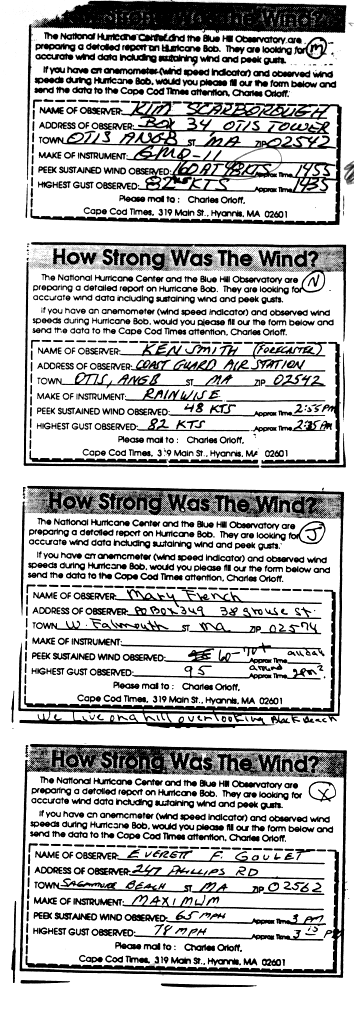 How Strong Was The Wind?
The National Hurricane Center and the Blue Hill Observatory are
preparing a detailed report on Hurricane Bob. They are looking for
accurate wind data including sustaining wind and peek gusts.
M
If you have an anemometer (wind speed indicator) and observed wind
speeds during Hurricane Bob, would you please fill our the form below and
send the data to the Cape Cod Times attention, Charles Orloff.
NAME OF OBSERVER: KIM SCARBOROUGH
ADDRESS OF OBSERVER: BOX 34 OTIS TOWER
TOWN OTIS ANGB ST MA ZIP 02542
MAKE OF INSTRUMENT: GMQ-11
PEEK SUSTAINED WIND OBSERVED: Approx Time 1455
HIGHEST GUST OBSERVED: 82 KTS Approx Time 1435
Please mail to: Charles Orloff,
Cape Cod Times, 319 Main St., Hyannis, MA 02601
How Strong Was The Wind?
The National Hurricane Center and the Blue Hill Observatory are
preparing a detailed report on Hurricane Bob. They are looking for
accurate wind data including sustaining wind and peek gusts.
N
If you have an anemometer (wind speed indicator) and observed wind
speeds during Hurricane Bob, would you please fill our the form below and
send the data to the Cape Cod Times attention, Charles Orloff.
NAME OF OBSERVER: KEN SMITH (FORECASTER)
ADDRESS OF OBSERVER: COAST GUARD AIR STATION
TOWN OTIS, ANGB ST MA ZIP 02542
MAKE OF INSTRUMENT: RAINWISE
PEEK SUSTAINED WIND OBSERVED: 48 KTS Approx Time 2:55 PM
HIGHEST GUST OBSERVED: 82 KTS Approx Time PM
Please mail to: Charles Orloff,
Cape Cod Times, 319 Main St., Hyannis, MA 02601
How Strong Was The Wind?
The National Hurricane Center and the Blue Hill Observatory are
preparing a detailed report on Hurricane Bob. They are looking for
accurate wind data including sustaining wind and peek gusts.
J
If you have an anemometer (wind speed indicator) and observed wind
speeds during Hurricane Bob, would you please fill our the form below and
send the data to the Cape Cod Times attention, Charles Orloff.
NAME OF OBSERVER: Mary French
ADDRESS OF OBSERVER: PO Box 349 38 grouse st.
TOWN W. Falmouth ST Ma ZIP 02574
MAKE OF INSTRUMENT:
PEEK SUSTAINED WIND OBSERVED: 60-70+ Approx Time
HIGHEST GUST OBSERVED: 95 Approx Time around 2pm?
Please mail to: Charles Orloff,
Cape Cod Times, 319 Main St., Hyannis, MA 02601
We live on a hill overlooking Black Beach
How Strong Was The Wind?
The National Hurricane Center and the Blue Hill Observatory are
preparing a detailed report on Hurricane Bob. They are looking for
accurate wind data including sustaining wind and peek gusts.
X
If you have an anemometer (wind speed indicator) and observed wind
speeds during Hurricane Bob, would you please fill our the form below and
send the data to the Cape Cod Times attention, Charles Orloff.
NAME OF OBSERVER: EVERETT F. GOULET
ADDRESS OF OBSERVER: 247 PHILLIPS RD
TOWN SAGAMORE BEACH ST MA ZIP 02562
MAKE OF INSTRUMENT: MAXIMUM
PEEK SUSTAINED WIND OBSERVED: 65 MPH Approx Time 3 PM
HIGHEST GUST OBSERVED: 78 MPH Approx Time 3 15 PM
Please mail to: Charles Orloff,
Cape Cod Times, 319 Main St., Hyannis, MA 02601